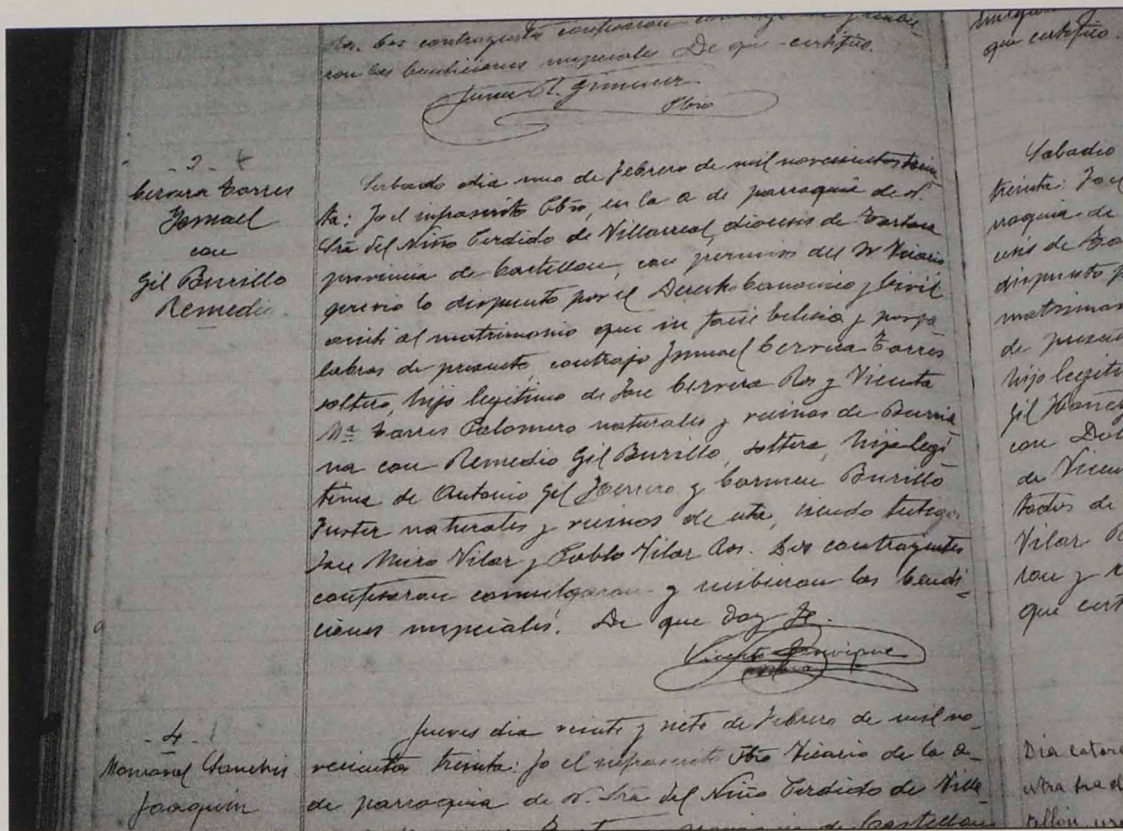 ron las bendiciones nupciales De que certifico.
Pbro
- 3 -
Cervera Torres
Ismael
con
Gil Burillo
Remedio
Sabado dia uno de Febrero de mil novecientos trein
ta: Yo el infrascrito Pbro, en la a de parroquia de N.
Sra del Niño Perdido de Villarreal, diocesis de Tortosa
provincia de Castellon, con permiso del Sr Vicario
previo lo dispuesto por el Derecho Canonico y Civil
asisti al matrimonio que in facie Eclesia y por pa
labras de presente contrajo Ismael Cervera Torres
soltero, hijo legitimo de Jose Cervera Ros y Vicenta
Mª Torres Palomero naturales y vecinos de Burria
na con Remedio Gil Burillo, soltera, hija legi
tima de Antonio Gil Herrero y Carmen Burillo
Fuster naturales y vecinos de esta, siendo testigos
Jose Miro Vilar y Pablo Vilar Ros. Los contrayentes
confesaron comulgaron y recibieron las bendi-
ciones nupciales. De que doy fe.
Vicente
- 4 -
Monsonal Sanchis
Joaquin
Jueves dia veinte y siete de Febrero de mil no-
vecientos treinta: Yo el infrascrito Pbro Vicario de la a-
de parroquia de N. Sra del Niño Perdido de Villa
provincia de Castellon
que certifico.
Sabado
treinta: Yo el
rroquia de
cesis de To
dispuesto p
matrimon
de presen
hijo legiti
Gil
con Dol
de Vicen
todos de
Vilar R
ron y r
que cert
Dia cator